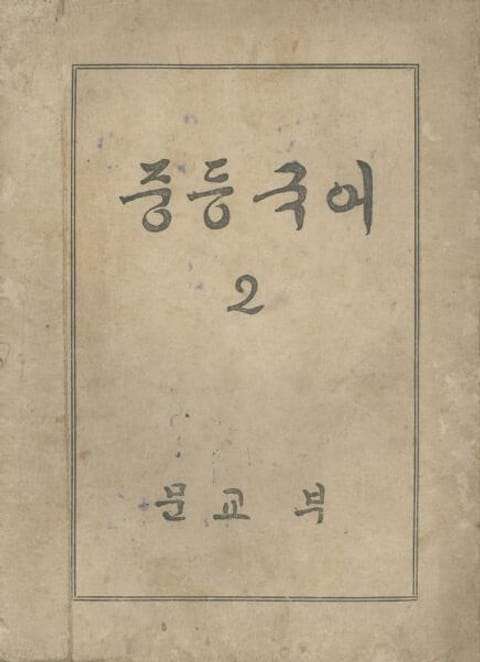 중등국어
2
문교부